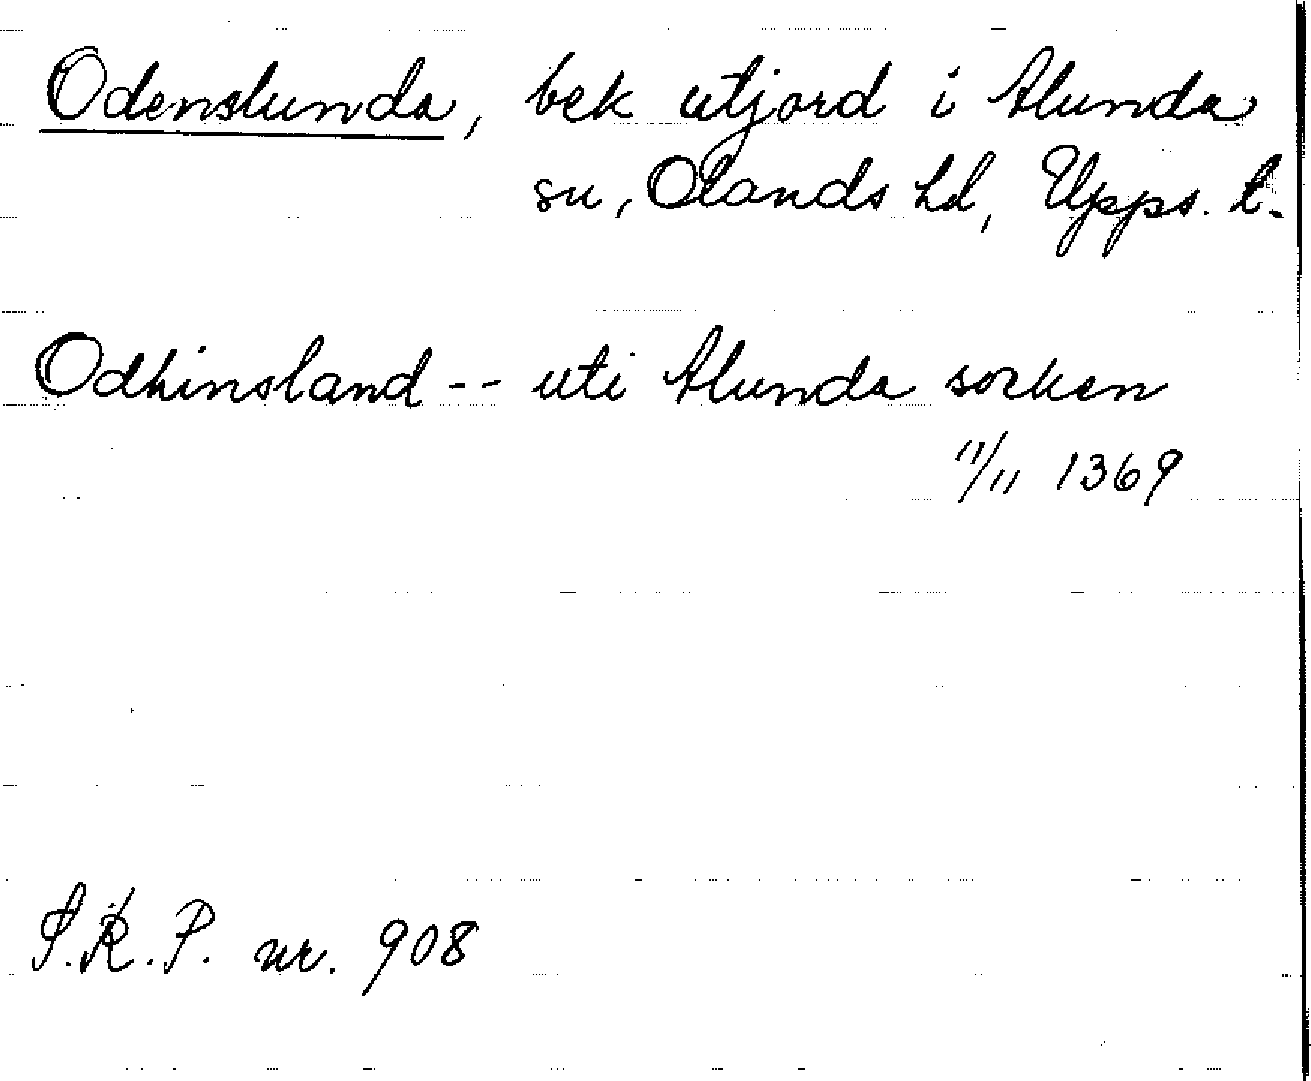 Odenslunda, bek utjord i Alunda
sn, Olands hd, Upps. l.
Odhinsland -- uti Alunda socken
11/11 1369
S.R.P. nr. 908